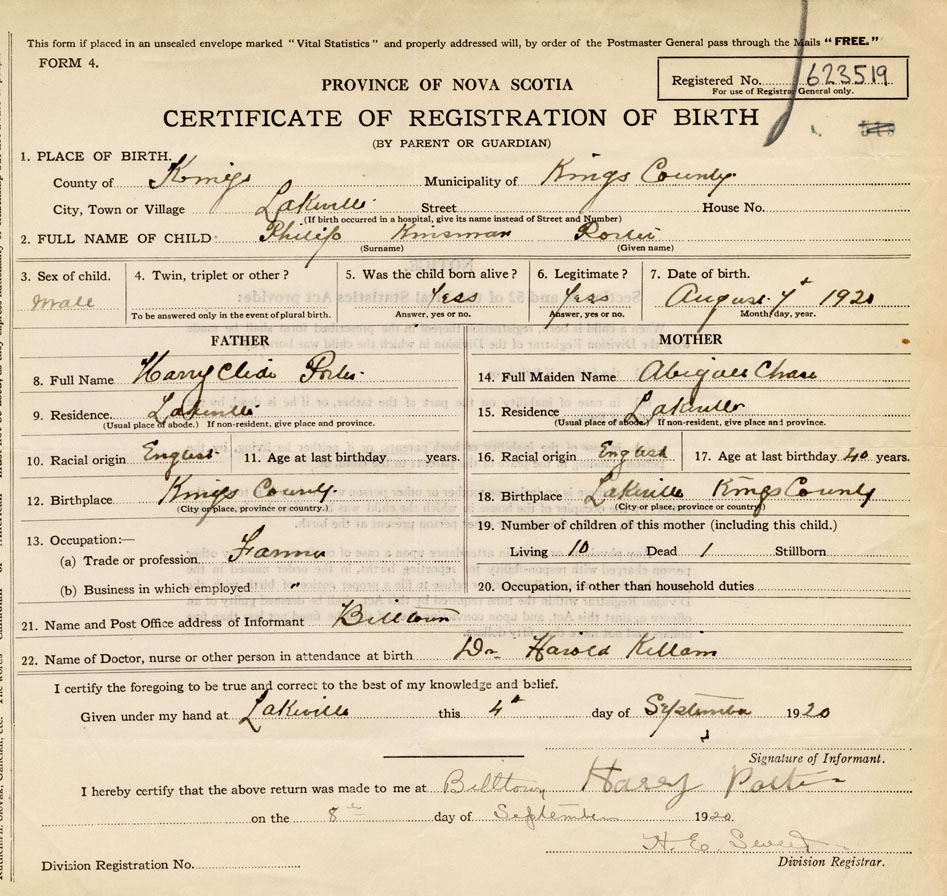 This form if placed in an unsealed envelope marked "Vital Statistics" and properly addressed will, by order of the Postmaster General pass through the Mails "FREE."
FORM 4.
Registered No. 623519
For use of Registrar General only.
PROVINCE OF NOVA SCOTIA
CERTIFICATE OF REGISTRATION OF BIRTH
(BY PARENT OR GUARDIAN)
1. PLACE OF BIRTH.
County of Kings Municipality of Kings County
City, Town or Village Lakville Street House No.
(If birth occurred in a hospital, give its name instead of Street and Number)
2. FULL NAME OF CHILD: Philip Kinsman Porter
(Surname) (Given name)
3. Sex of child. 4. Twin, triplet or other? 5. Was the child born alive? 6. Legitimate? 7. Date of birth.
male Yess Yess August 7t 1920
To be answered only in the event of plural birth. Answer, yes or no. Answer, yes or no. Month, day, year.
FATHER MOTHER
8. Full Name Harry Clide Porter 14. Full Maiden Name Abigail Chase
9. Residence. Lakville 15. Residence Lakville
(Usual place of abode.) If non-resident, give place and province. (Usual place of abode.) If non-resident, give place and province.
10. Racial origin English 11. Age at last birthday years. 16. Racial origin English 17. Age at last birthday 40 years.
12. Birthplace Kings County 18. Birthplace Lakville Kings County
(City or place, province or country.) (City or place, province or country)
13. Occupation:— 19. Number of children of this mother (including this child.)
(a) Trade or profession. Farmer Living 10 Dead 1 Stillborn
(b) Business in which employed " 20. Occupation, if other than household duties
21. Name and Post Office address of Informant Billtown
22. Name of Doctor, nurse or other person in attendance at birth Dr Harold Killam
I certify the foregoing to be true and correct to the best of my knowledge and belief.
Given under my hand at Lakville this 4th day of September 1920
Signature of Informant.
I hereby certify that the above return was made to me at Billtown Harry Porter
on the 8th day of September 1920.
H. E.
Division Registration No. Division Registrar.